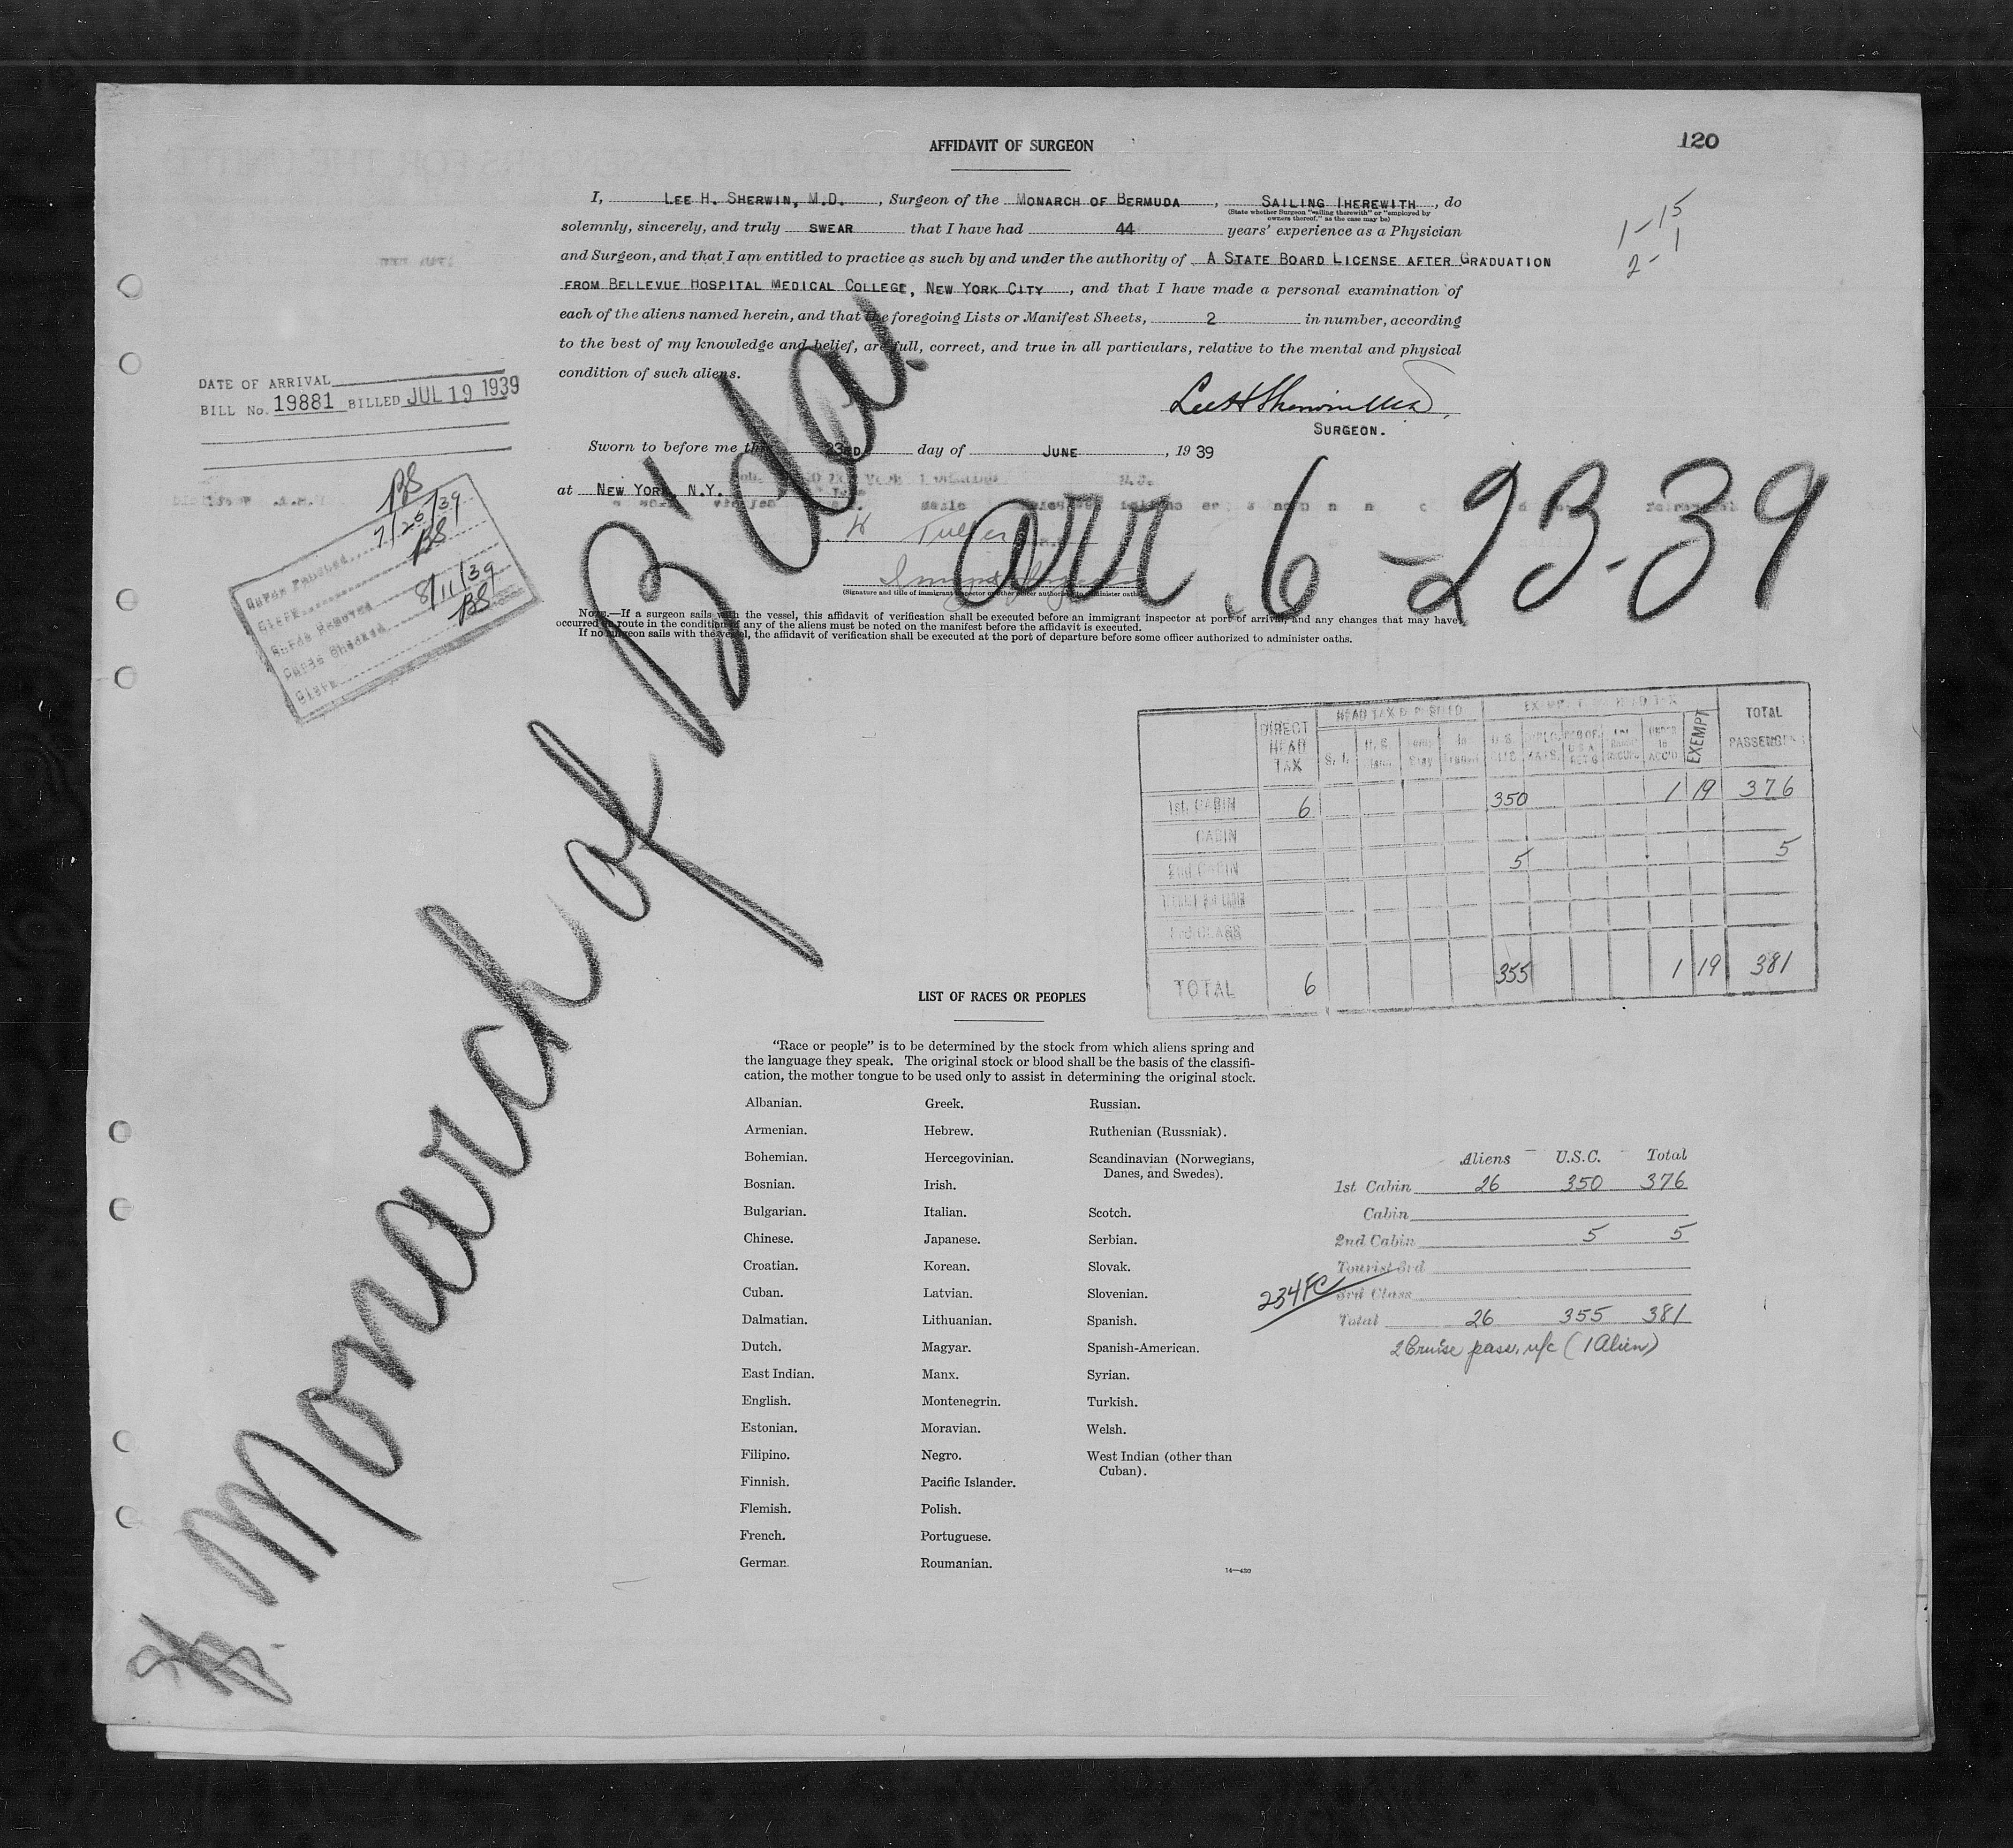 AFFIDAVIT OF SURGEON
120
I, LEE H. SHERWIN, M.D. , Surgeon of the MONARCH OF BERMUDA , SAILING THEREWITH , do
(State whether Surgeon "sailing therewith" or "employed by owners thereof," as the case may be)
solemnly, sincerely, and truly SWEAR that I have had 44 years' experience as a Physician
and Surgeon, and that I am entitled to practice as such by and under the authority of A STATE BOARD LICENSE AFTER GRADUATION
FROM BELLEVUE HOSPITAL MEDICAL COLLEGE, NEW YORK CITY , and that I have made a personal examination of
each of the aliens named herein, and that the foregoing Lists or Manifest Sheets, 2 in number, according
to the best of my knowledge and belief, are full, correct, and true in all particulars, relative to the mental and physical
condition of such aliens.
1-15
2-1
DATE OF ARRIVAL
BILL No. 19881 BILLED JUL 19 1939
Lee H Sherwin MD
SURGEON.
Sworn to before me this 23RD day of JUNE , 19 39
at NEW YORK, N.Y.
BS
7/25/39
Clerk BS
8/11/39
Cards Checked BS
Clerk
Monarch of B'da
arr. 6-23-39
(Signature and title of immigrant inspector or other officer authorized to administer oaths)
NOTE.—If a surgeon sails with the vessel, this affidavit of verification shall be executed before an immigrant inspector at port of arrival, and any changes that may have
occurred en route in the condition of any of the aliens must be noted on the manifest before the affidavit is executed.
If no surgeon sails with the vessel, the affidavit of verification shall be executed at the port of departure before some officer authorized to administer oaths.
DIRECT HEAD TAX HEAD TAX DEPOSITED EXEMPT TOTAL PASSENGERS
1st. CABIN 6 350 1 19 376
CABIN
2nd CABIN 5 5
3rd CLASS
TOTAL 6 355 1 19 381
LIST OF RACES OR PEOPLES
"Race or people" is to be determined by the stock from which aliens spring and
the language they speak. The original stock or blood shall be the basis of the classifi-
cation, the mother tongue to be used only to assist in determining the original stock.
Albanian. Greek. Russian.
Armenian. Hebrew. Ruthenian (Russniak).
Bohemian. Hercegovinian. Scandinavian (Norwegians,
Danes, and Swedes).
Bosnian. Irish.
Bulgarian. Italian. Scotch.
Chinese. Japanese. Serbian.
Croatian. Korean. Slovak.
Cuban. Latvian. Slovenian.
Dalmatian. Lithuanian. Spanish.
Dutch. Magyar. Spanish-American.
East Indian. Manx. Syrian.
English. Montenegrin. Turkish.
Estonian. Moravian. Welsh.
Filipino. Negro. West Indian (other than
Cuban).
Finnish. Pacific Islander.
Flemish. Polish.
French. Portuguese.
German. Roumanian.
14—430
Aliens U.S.C. Total
1st Cabin 26 350 376
Cabin
2nd Cabin 5 5
Tourist 3rd
234FC
3rd Class
Total 26 355 381
2 Cruise pass. n/c (1 Alien)